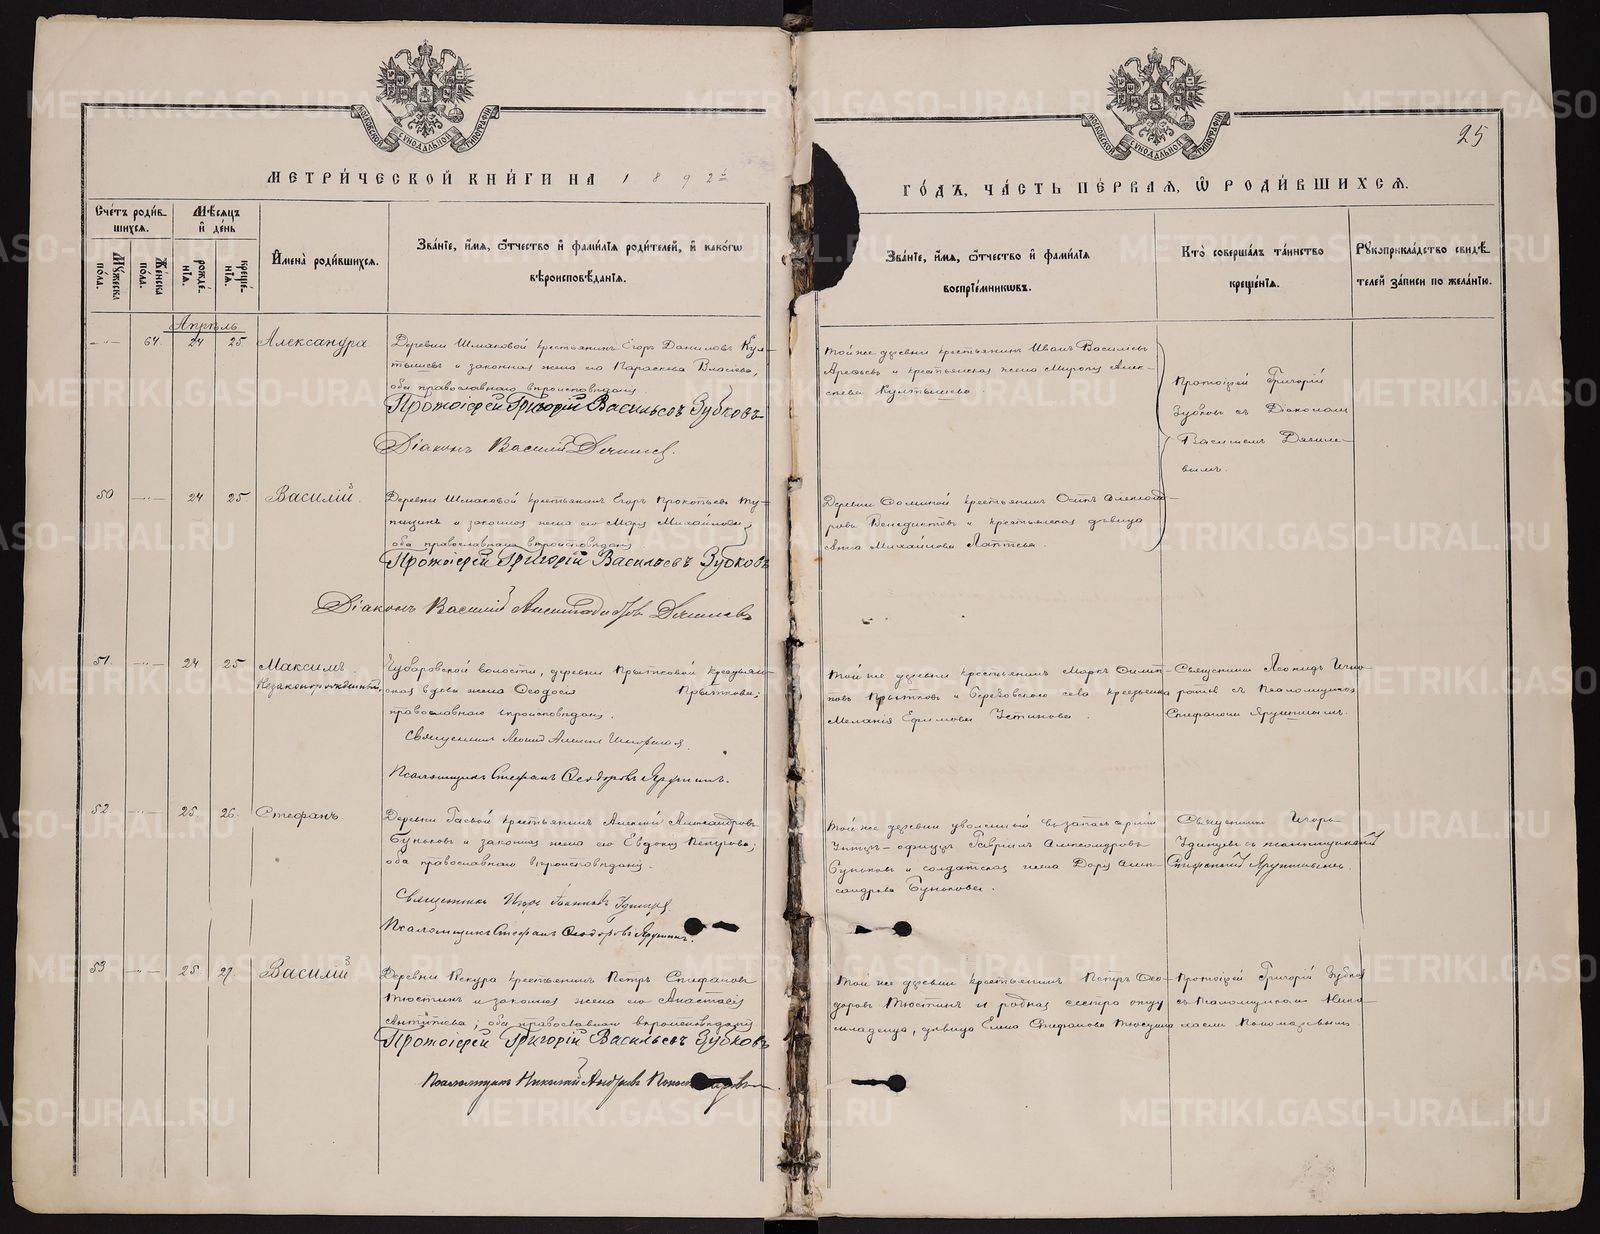 МЕТРИ́ЧЕСКОЙ КНИ́ГИ НА 1892й
ГО́ДЪ, ЧА́СТЬ ПЕ́РВАЯ, Ѡ РОДИ́ВШИХСЯ.
25
Сче́тъ роди́в-
шихся.
Му́жеска по́ла.
Же́нска по́ла.
Мѣ́сяцъ и де́нь
рожде́нїя.
креще́нїя.
И҆мена̀ роди́вшихся.
Зва́нїе, и҆́мя, ѻ҆́тчество и҆ фами́лїя роди́телей, и҆ како́гѡ
вѣроисповѣ́данїя.
Зва́нїе, и҆́мя, ѻ҆́тчество и҆ фами́лїя
воспрїе́мникѡвъ.
Кто̀ соверша́лъ та́инство
креще́нїя.
Рꙋкоприкла́дство свидѣ́-
телей за́писи по жела́нїю.
Апрѣль
64 24 25 Александра
Деревни Шмаковой крестьянинъ Егоръ Даниловъ Кул-
тышевъ и законная жена его Параскева Власіева,
оба православнаго вѣроисповѣданія
Протоіерей Григорій Васильевъ Зубковъ
Діаконъ Василій
Той же деревни крестьянинъ Иванъ Васильевъ
Арефьевъ и крестьянская жена Алек-
сѣева Култышева
Протоіерей Григорій
Зубковъ съ Діакономъ
Василіемъ
50 24 25 Василій
Деревни Шмаковой крестьянинъ Егоръ Прокопьевъ
и законная жена его Михайлова,
оба православнаго вѣроисповѣданія
Протоіерей Григорій Васильевъ Зубковъ
Діаконъ Василій
Деревни крестьянинъ Осипъ Александ-
ровъ Венедиктовъ и крестьянская дѣвица
Анна Михайлова Лаптева
51. 24 25 Максимъ
Незаконнорожденный
волости, деревни Прытковой крестьян-
ская вдова жена Ѳеодосія Прыткова;
православнаго вѣроисповѣданія.
Священникъ Леонидъ
Псаломщикъ Стефанъ Ѳеодоровъ Ярушинъ.
Той же деревни крестьянинъ Маркъ
Прытковъ и села крестьянка
Меланія Ефимова Устинова.
Священникъ Леонидъ
съ Псаломщикомъ
Стефаномъ Ярушинымъ.
52 25. 26. Стефанъ
Деревни крестьянинъ Алексій Александровъ
Буньковъ и законная жена его Евдокія Петрова;
оба православнаго вѣроисповѣданія.
Священникъ
Псаломщикъ Стефанъ Ѳеодоровъ Ярушинъ.
Той же деревни уволенный въ запасъ арміи
Унтеръ-офицеръ Гавріилъ Александровъ
Буньковъ и солдатская жена Дарія Алек-
сандрова Бунькова.
Священникъ Игорь
Удинцевъ съ псаломщикомъ
Стефаномъ Ярушинымъ.
53 25. 27. Василій
Деревни Пекура крестьянинъ Петръ Стефановъ
Тюстинъ и законная жена его Анастасія
Антипьева; оба православнаго вѣроисповѣданія
Протоіерей Григорій Васильевъ Зубковъ
Псаломщикъ Николай
Той же деревни крестьянинъ Петръ Ѳео-
доровъ Тюстинъ и родная сестра отцу
младенца, дѣвица Елена Стефанова
Протоіерей Григорій Зубковъ
съ Псаломщикомъ Нико-
лаемъ Пономаревымъ
METRIKI.GASO-URAL.RU